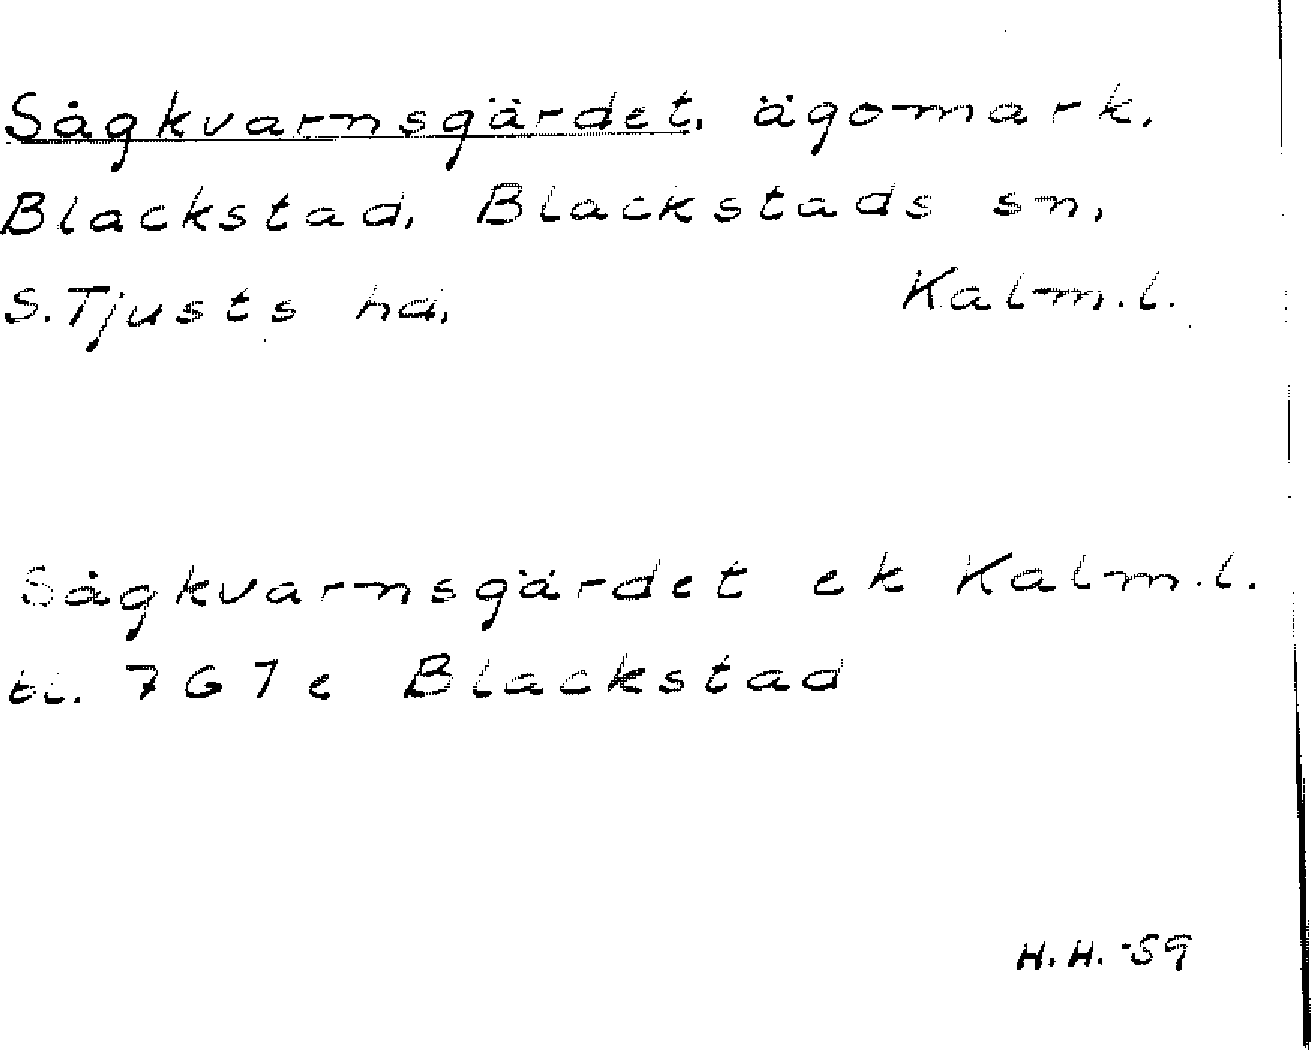 Sågkvarnsgärdet, ägomark,
Blackstad, Blackstads sn,
S. Tjusts hd, Kalm.l.
Sågkvarnsgärdet ek Kalm.l.
bl. 7G7e Blackstad
H.H. -59